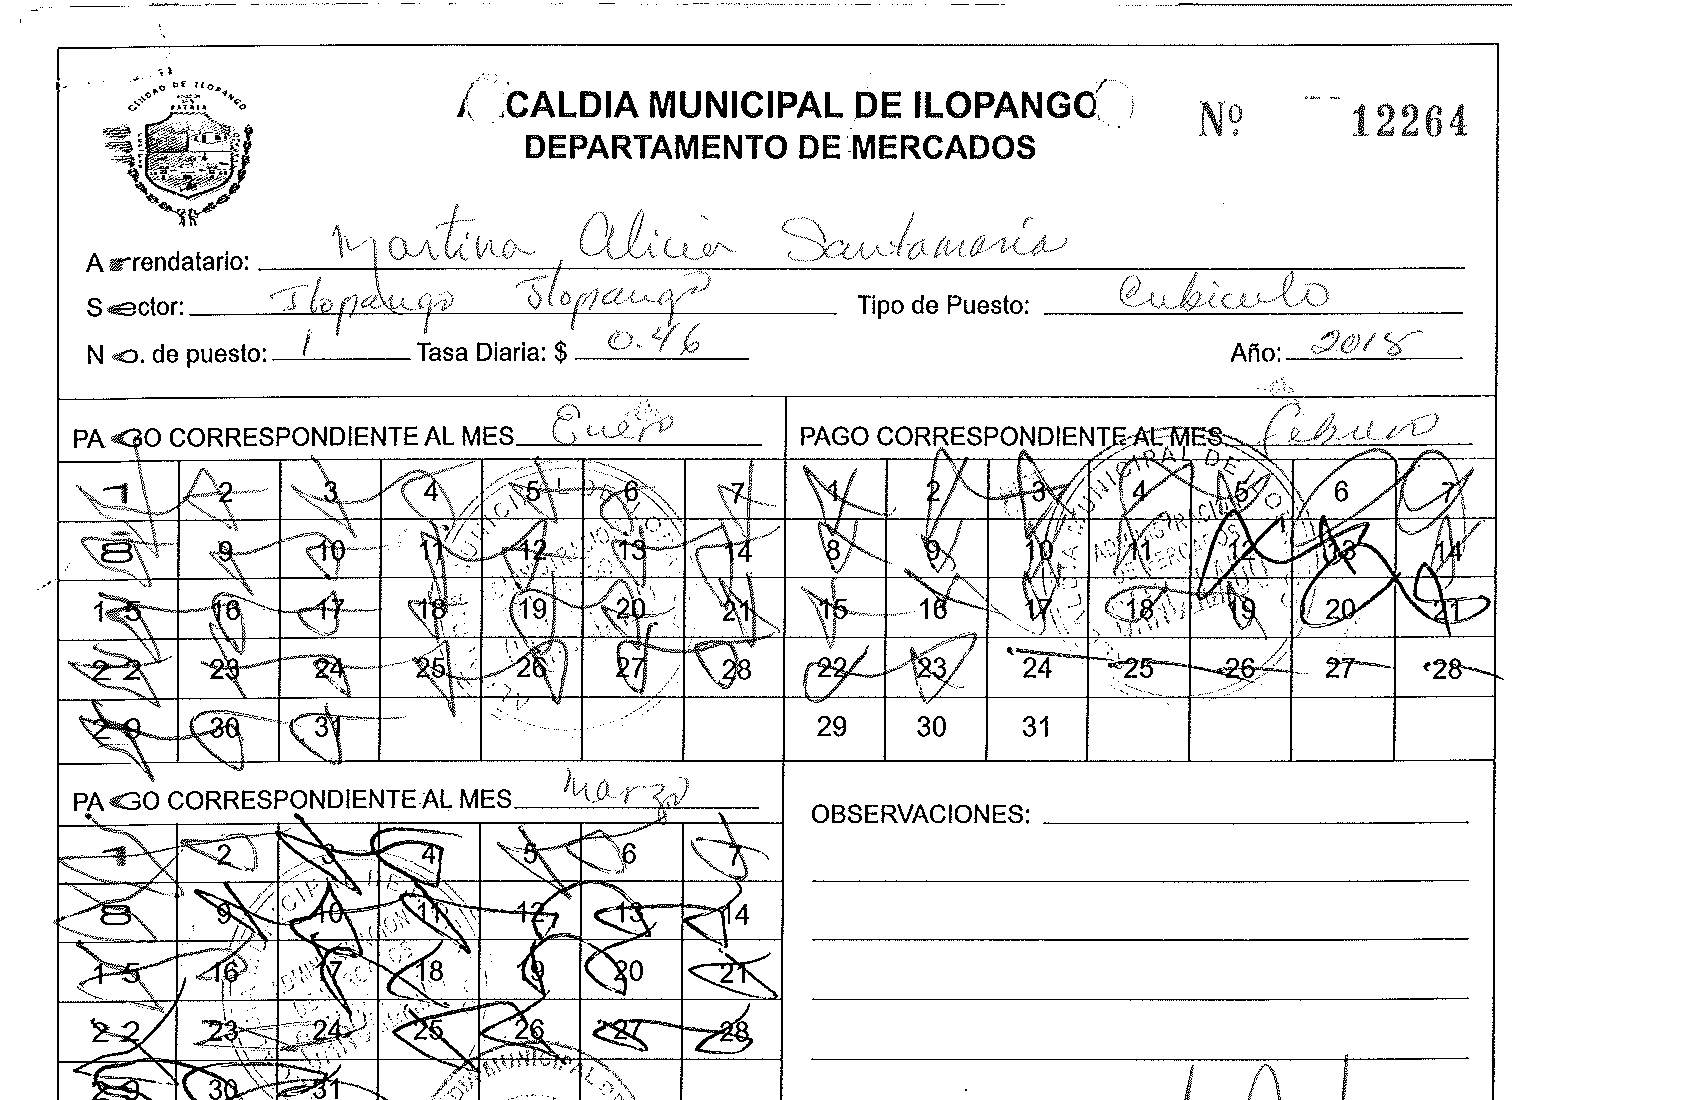 CIUDAD DE ILOPANGO
PATRIA
CALDIA MUNICIPAL DE ILOPANGO
DEPARTAMENTO DE MERCADOS
Nº 12264
Arrendatario: Martina Alicia Santamaría
Sector: Ilopango Ilopango Tipo de Puesto: Cubiculo
No. de puesto: 1 Tasa Diaria: $ 0.46 Año: 2018
PAGO CORRESPONDIENTE AL MES Enero
1 2 3 4 5 6 7
8 9 10 11 12 13 14
15 16 17 18 19 20 21
22 23 24 25 26 27 28
29 30 31
PAGO CORRESPONDIENTE AL MES Febrero
1 2 3 4 5 6 7
8 9 10 11 12 13 14
15 16 17 18 19 20 21
22 23 24 25 26 27 28
29 30 31
PAGO CORRESPONDIENTE AL MES Marzo
1 2 3 4 5 6 7
8 9 10 11 12 13 14
15 16 17 18 19 20 21
22 23 24 25 26 27 28
29 30 31
OBSERVACIONES: